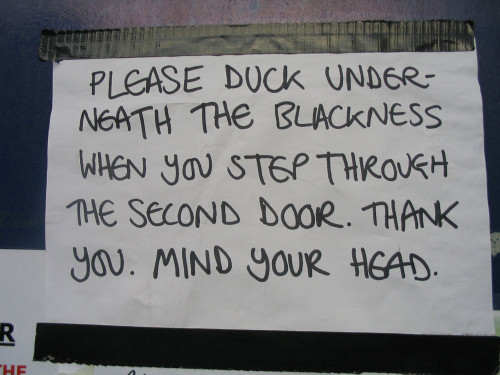 PLEASE DUCK UNDER-
NEATH THE BLACKNESS
WHEN YOU STEP THROUGH
THE SECOND DOOR. THANK
YOU. MIND YOUR HEAD.
R
THE